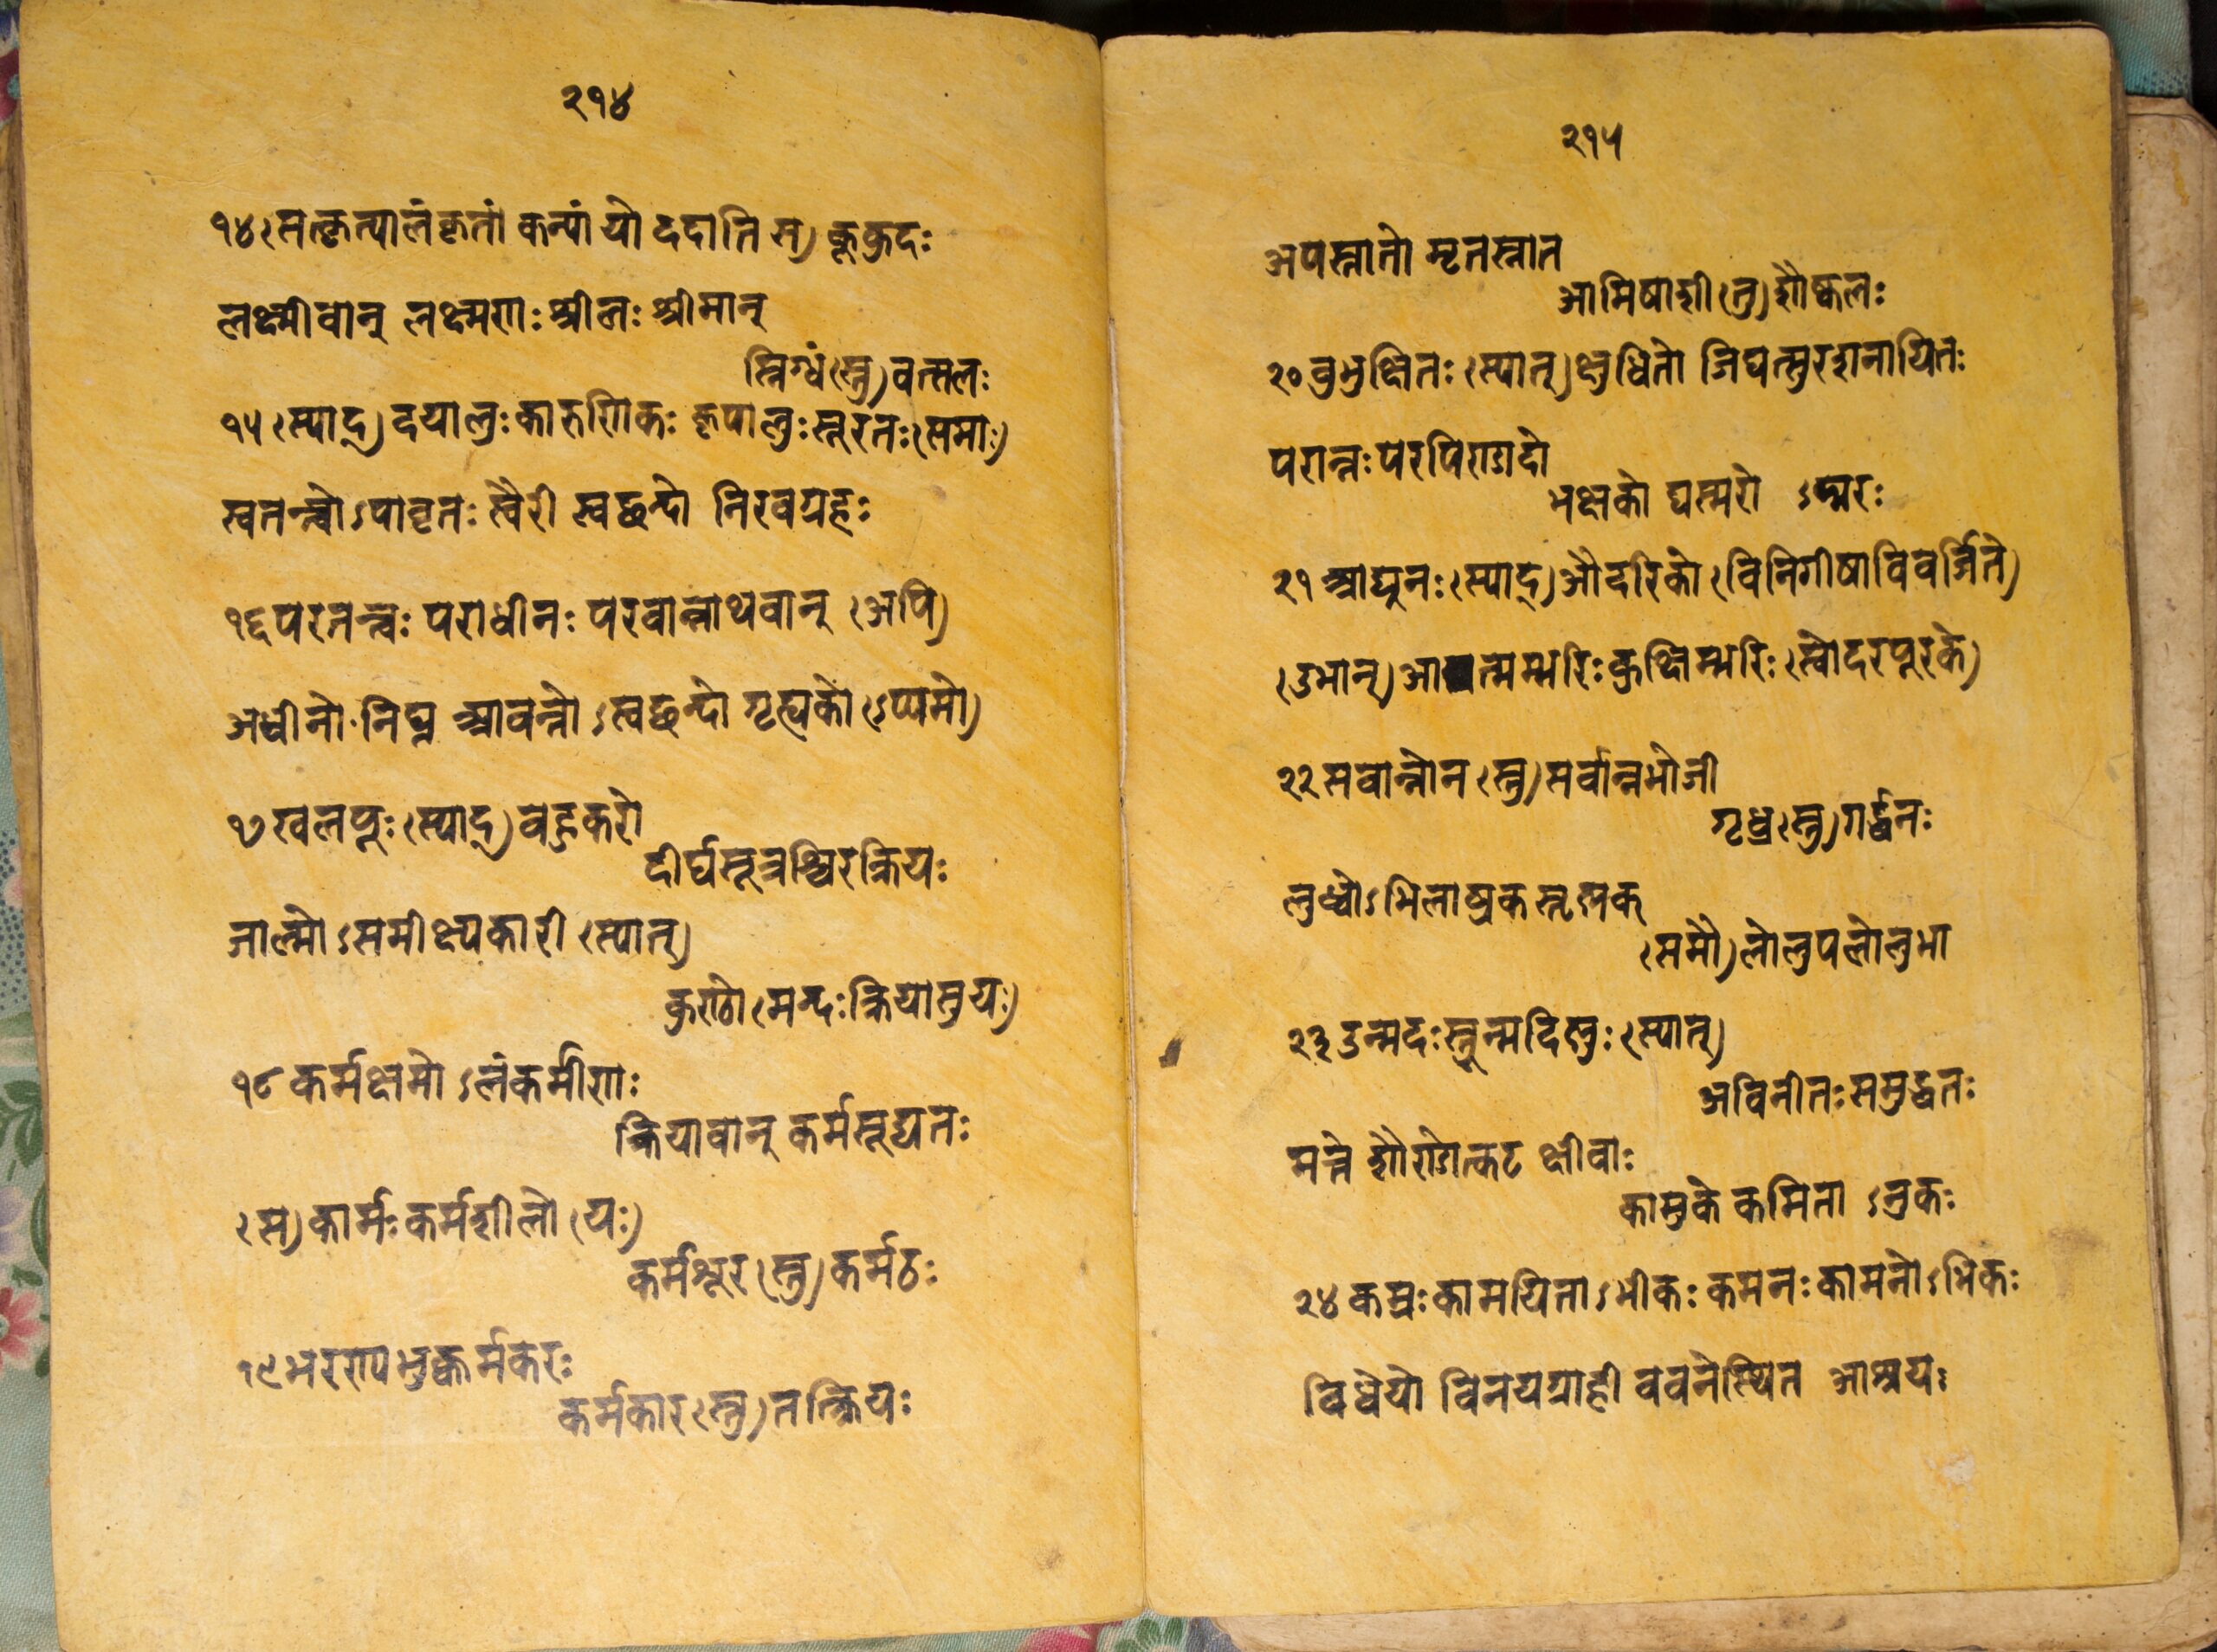 २१४
१४(सत्कृत्यालंकृतां कन्यां यो ददाति स) कूकुदः
लक्ष्मीवान् लक्ष्मणः श्रीलः श्रीमान्
स्निग्धं(स्तु)वत्सलः
१५(स्याद्)दयालुःकारुणिकः कृपालुःसूरतः(समाः)
स्वतन्त्रोऽपावृतः स्वैरी स्वछन्दो निरवग्रहः
१६परतन्त्रः पराधीनः परवान्नाथवान् (अपि)
अधीनो निघ्न आयत्तोऽस्वछन्दो गृह्यको(ऽप्यमो)
१७खलपूः(स्याद्)बहुकरो
दीर्घसूत्रश्चिरक्रियः
जाल्मोऽसमीक्ष्यकारी (स्यात्)
कुण्ठो(मन्दःक्रियासुयः)
१८कर्मक्षमोऽलंकर्मीणः
क्रियावान् कर्मसूद्यतः
(स)कार्मःकर्मशीलो(यः)
कर्मशूर(स्तु)कर्मठः
१९भरण्यभुक्कर्मकरः
कर्मकार(स्तु)तत्क्रियः
२१५
अपस्नातो मृतस्नात
आमिषाशी(तु)शौष्कलः
२०बुभुक्षितः(स्यात्)क्षुधितो जिघत्सुरशनायितः
परान्नःपरपिण्डादो
भक्षको घस्मरो ऽद्मरः
२१आद्यूनः(स्याद्)औदरिको(विजिगीषाविवर्जिते)
(उभान्)आत्मम्भरिःकुक्षिम्भरिः(स्वोदरपूरके)
२२सवान्नोन(स्तु)सर्वान्नभोजी
गृध्र(स्तु)गर्द्धनः
लुब्धोऽभिलाषुकस्तृष्णक्
(समौ)लोलुपलोलुभा
२३उन्मदःस्तून्मदिष्णुः(स्यात्)
अविनीतःसमुद्धतः
मत्ते शौण्डोत्कट क्षीवाः
कामुके कमिता ऽनुकः
२४कम्रःकामयिताऽभीकःकमनःकामनोऽभिकः
विधेयो विनयग्राही वचनेस्थित आश्रयः